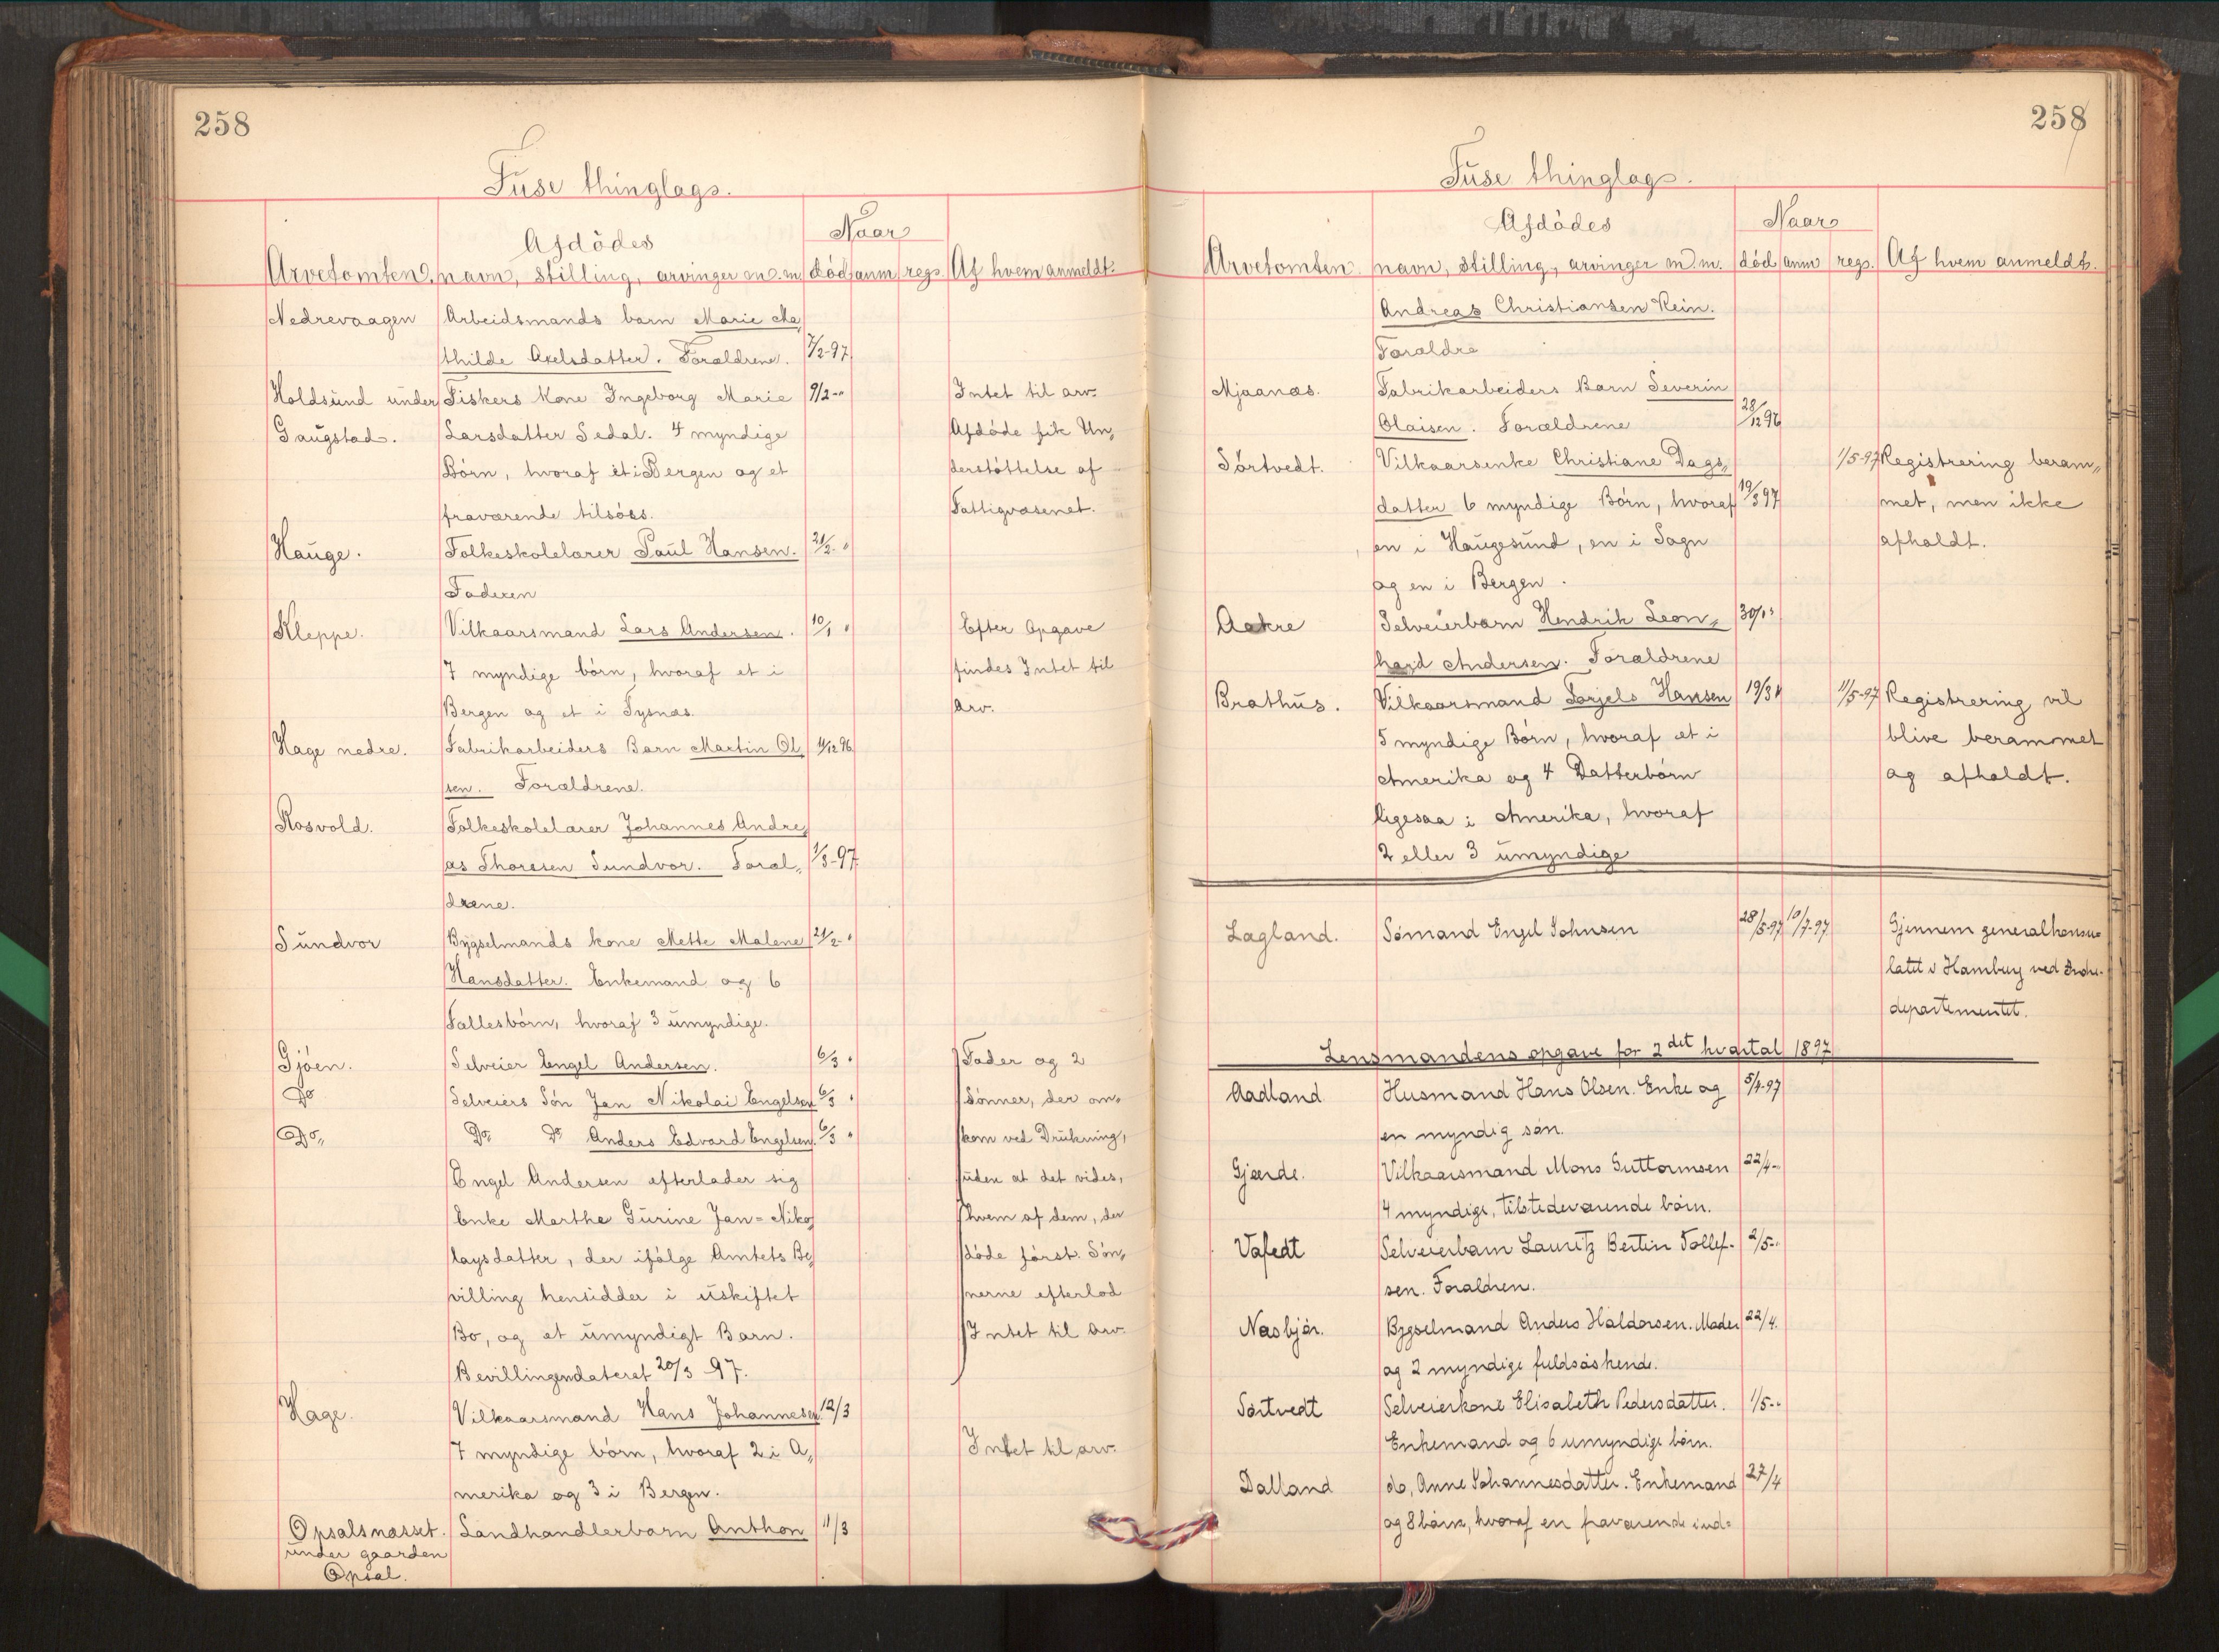 258
Fuse thinglags.
Afdödes
Naar
Arvetomten. navn, stilling, arvinger m.m. död anm regs. Af hvem anmeldt.
Nedrevaagen Arbeidsmands barn Marie Ma„
thilde Axelsdatter. Forældrene. 7/2-97
Holdsund under Fiskers Kone Ingeborg Marie 9/2-" Intet til arv.
Gaugstad. Larsdatter Sedal. 4 myndige Afdöde fik Un„
Börn, hvoraf et i Bergen og et derstöttelse af
fraværende tilsöes. Fattigvæsenet.
Hauge. Folkeskolelærer Paul Hansen. 21/2-"
Faderen
Kleppe. Vilkaarsmand Lars Andersen. 10/1 " Efter Opgave
7 myndige börn, hvoraf et i findes Intet til
Bergen og et i Tysnæs. Arv.
Hage nedre. Fabrikarbeiders Barn Martin Ol 11/12 96
sen. Forældrene.
Rosvold. Folkeskolelærer Johannes Andre„
as Thoresen Sundvor. Foræl„ 1/3-97
drene.
Sundvor Bygselmands kone Mette Malene 21/2-"
Hansdatter. Enkemand og 6
Fællesbörn, hvoraf 3 umyndige.
Gjöen. Selveier Engel Andersen. 6/3 " Fader og 2
Do Selveiers Sön Jan Nikolai Engelsen 6/3 " Sönner, der om„
Do„ Do„ Do Anders Edvard Engelsen. 6/3 " kom ved Drukning,
Engel Andersen efterlader sig uden at det vides,
Enke Marthe Gurine Jan=Niko„ hvem af dem, der
laysdatter, der ifölge Amtets Be„ döde först. Sön„
villing hensidder i uskiftet nerne efterlod
Bo, og et umyndigt Barn. Intet til Arv.
Bevillingen dateret 20/3 -97.
Hage. Vilkaarsmand Hans Johannesen. 12/3
7 myndige börn, hvoraf 2 i A„ Intet til arv.
merika og 3 i Bergen.
Opsalsnæsset. Landhandlerbarn Anthon 11/3
under gaarden
Opsal.
258
Fuse thinglags.
Afdödes
Naar
Arvetomten. navn, stilling, arvinger m.m. död anm regs. Af hvem anmeldt.
Andreas Christiansen Hein.
Forældre
Mjaanæs. Fabrikarbeiders Barn Severin
Olaisen. Forældrene 28/12 96
Sörtvedt. Vilkaarsenke Christiane Dags„ 1/5-97 Registrering beram„
datter 6 myndige Börn, hvoraf 19/3 97 met, men ikke
en i Haugesund, en i Sogn afholdt.
og en i Bergen.
Aakre Selveierbarn Hendrik Leon„ 30/1 "
hard Andersen. Forældrene
Brathus. Vilkaarsmand Torjels Hansen 19/3 " 11/5-97 Registrering vil
5 myndige Börn, hvoraf et i blive berammet
Amerika og 4 Datterbörn og afholdt.
ligesaa i Amerika, hvoraf
2 eller 3 umyndige
Lagland. Sömand Engel Johnsen 28/5-97 10/7-97 Gjennem generalkonsu=
latet i Hamburg ved Indre-
departementet.
Lensmandens opgave for 2det kvartal 1897
Aadland Husmand Hans Olsen. Enke og 5/4-97
en myndig sön.
Gjærde. Vilkaarsmand Mons Guttormsen 22/4-"
4 myndige, tilstedeværende börn.
Vafedt Selveierbarn Lauritz Bertin Tollef- 2/5-"
sen. Forældren.
Næsbjör. Bygselmand Anders Haldorsen. Moder 22/4.
og 2 myndige fuldsöskende.
Sörtvedt Selveierkone Elisabeth Pedersdatter. 1/5-"
Enkemand og 6 umyndige börn.
Dalland do, Anne Johannesdatter. Enkemand 27/4
og 8 börn, hvoraf en fraværende ind=